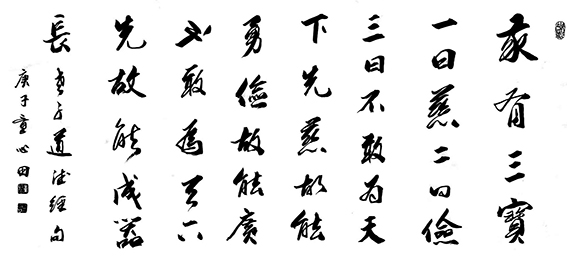 我有三寶
一曰慈二曰儉
三曰不敢为天
下先慈故能
勇儉故能廣
不敢為天下
先故能成器
長 老子道德經句
庚子童心田